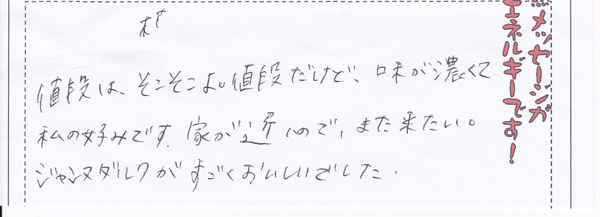 値段は、そこそこよい値段だけど、味が濃くて
私の好みです。家が近いので、また来たい。
ジャンヌダルクがすごくおいしいでした。
メッセージが
エネルギーです!